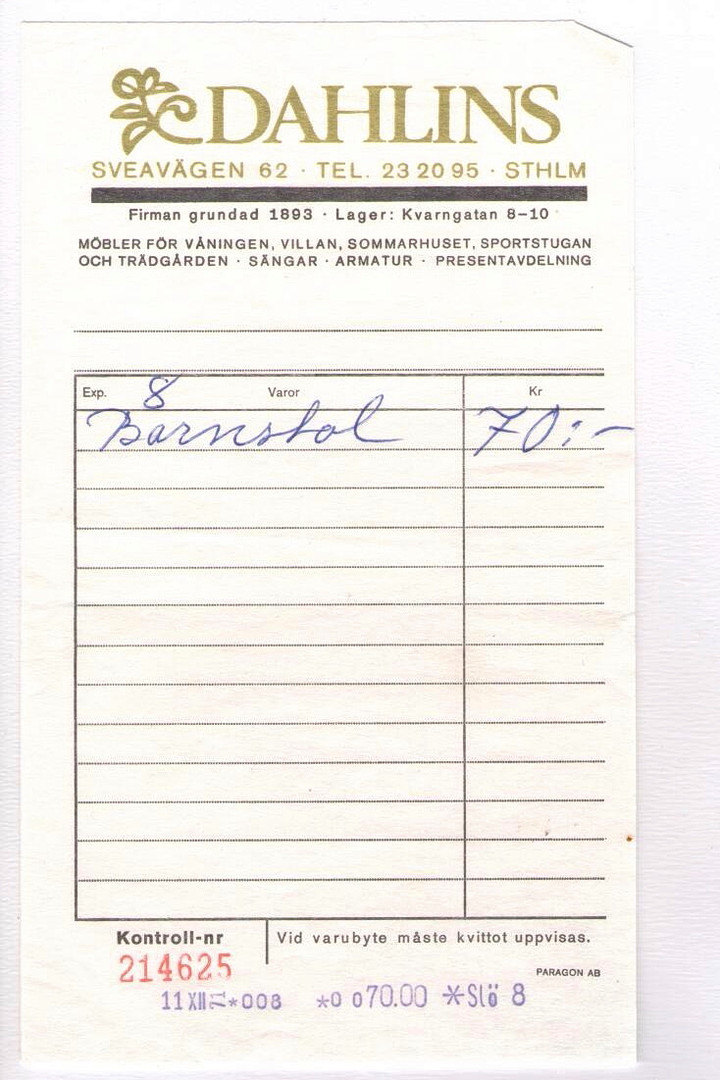 DAHLINS
SVEAVÄGEN 62 · TEL. 23 20 95 · STHLM
Firman grundad 1893 · Lager: Kvarngatan 8–10
MÖBLER FÖR VÅNINGEN, VILLAN, SOMMARHUSET, SPORTSTUGAN
OCH TRÄDGÅRDEN · SÄNGAR · ARMATUR · PRESENTAVDELNING
Exp. 8 Varor Kr
Barnstol 70:-
Kontroll-nr Vid varubyte måste kvittot uppvisas.
214625
PARAGON AB
11 XII *008 *0 070.00 *Slö 8